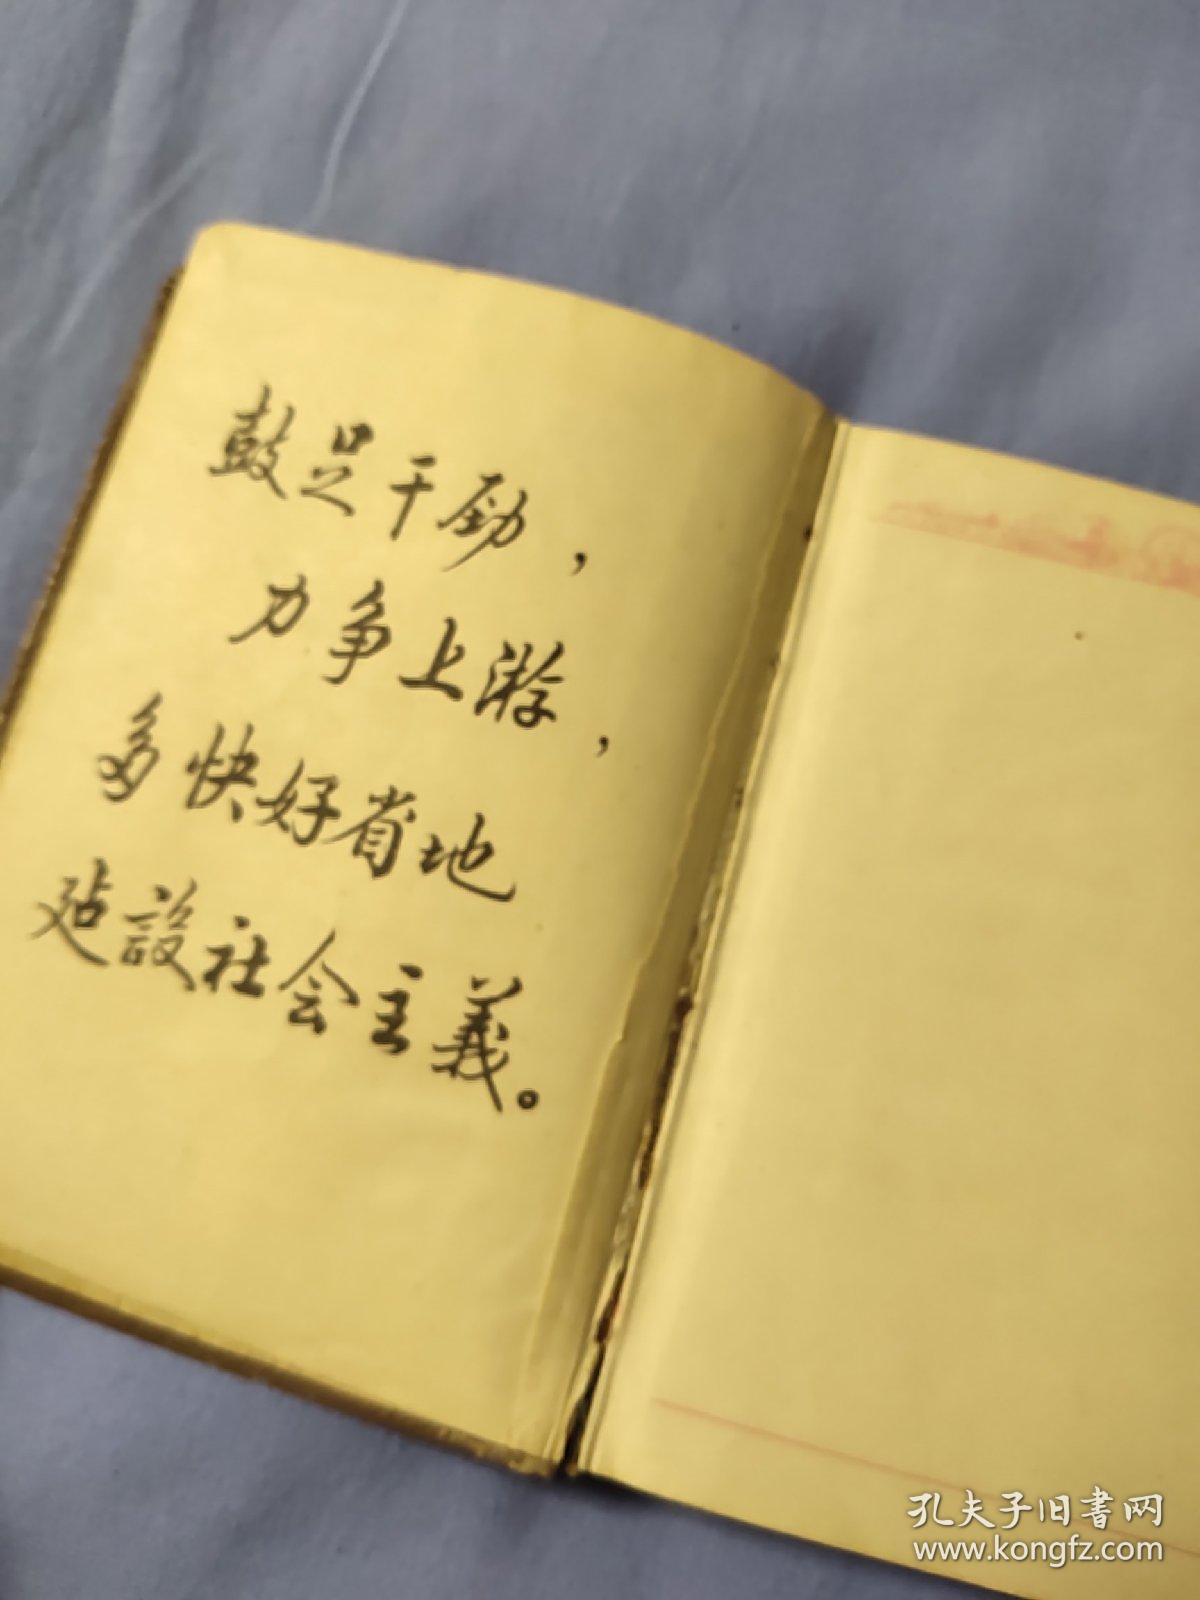 鼓足干劲，
力争上游，
多快好省地
建設社会主義。
孔夫子旧書网
www.kongfz.com